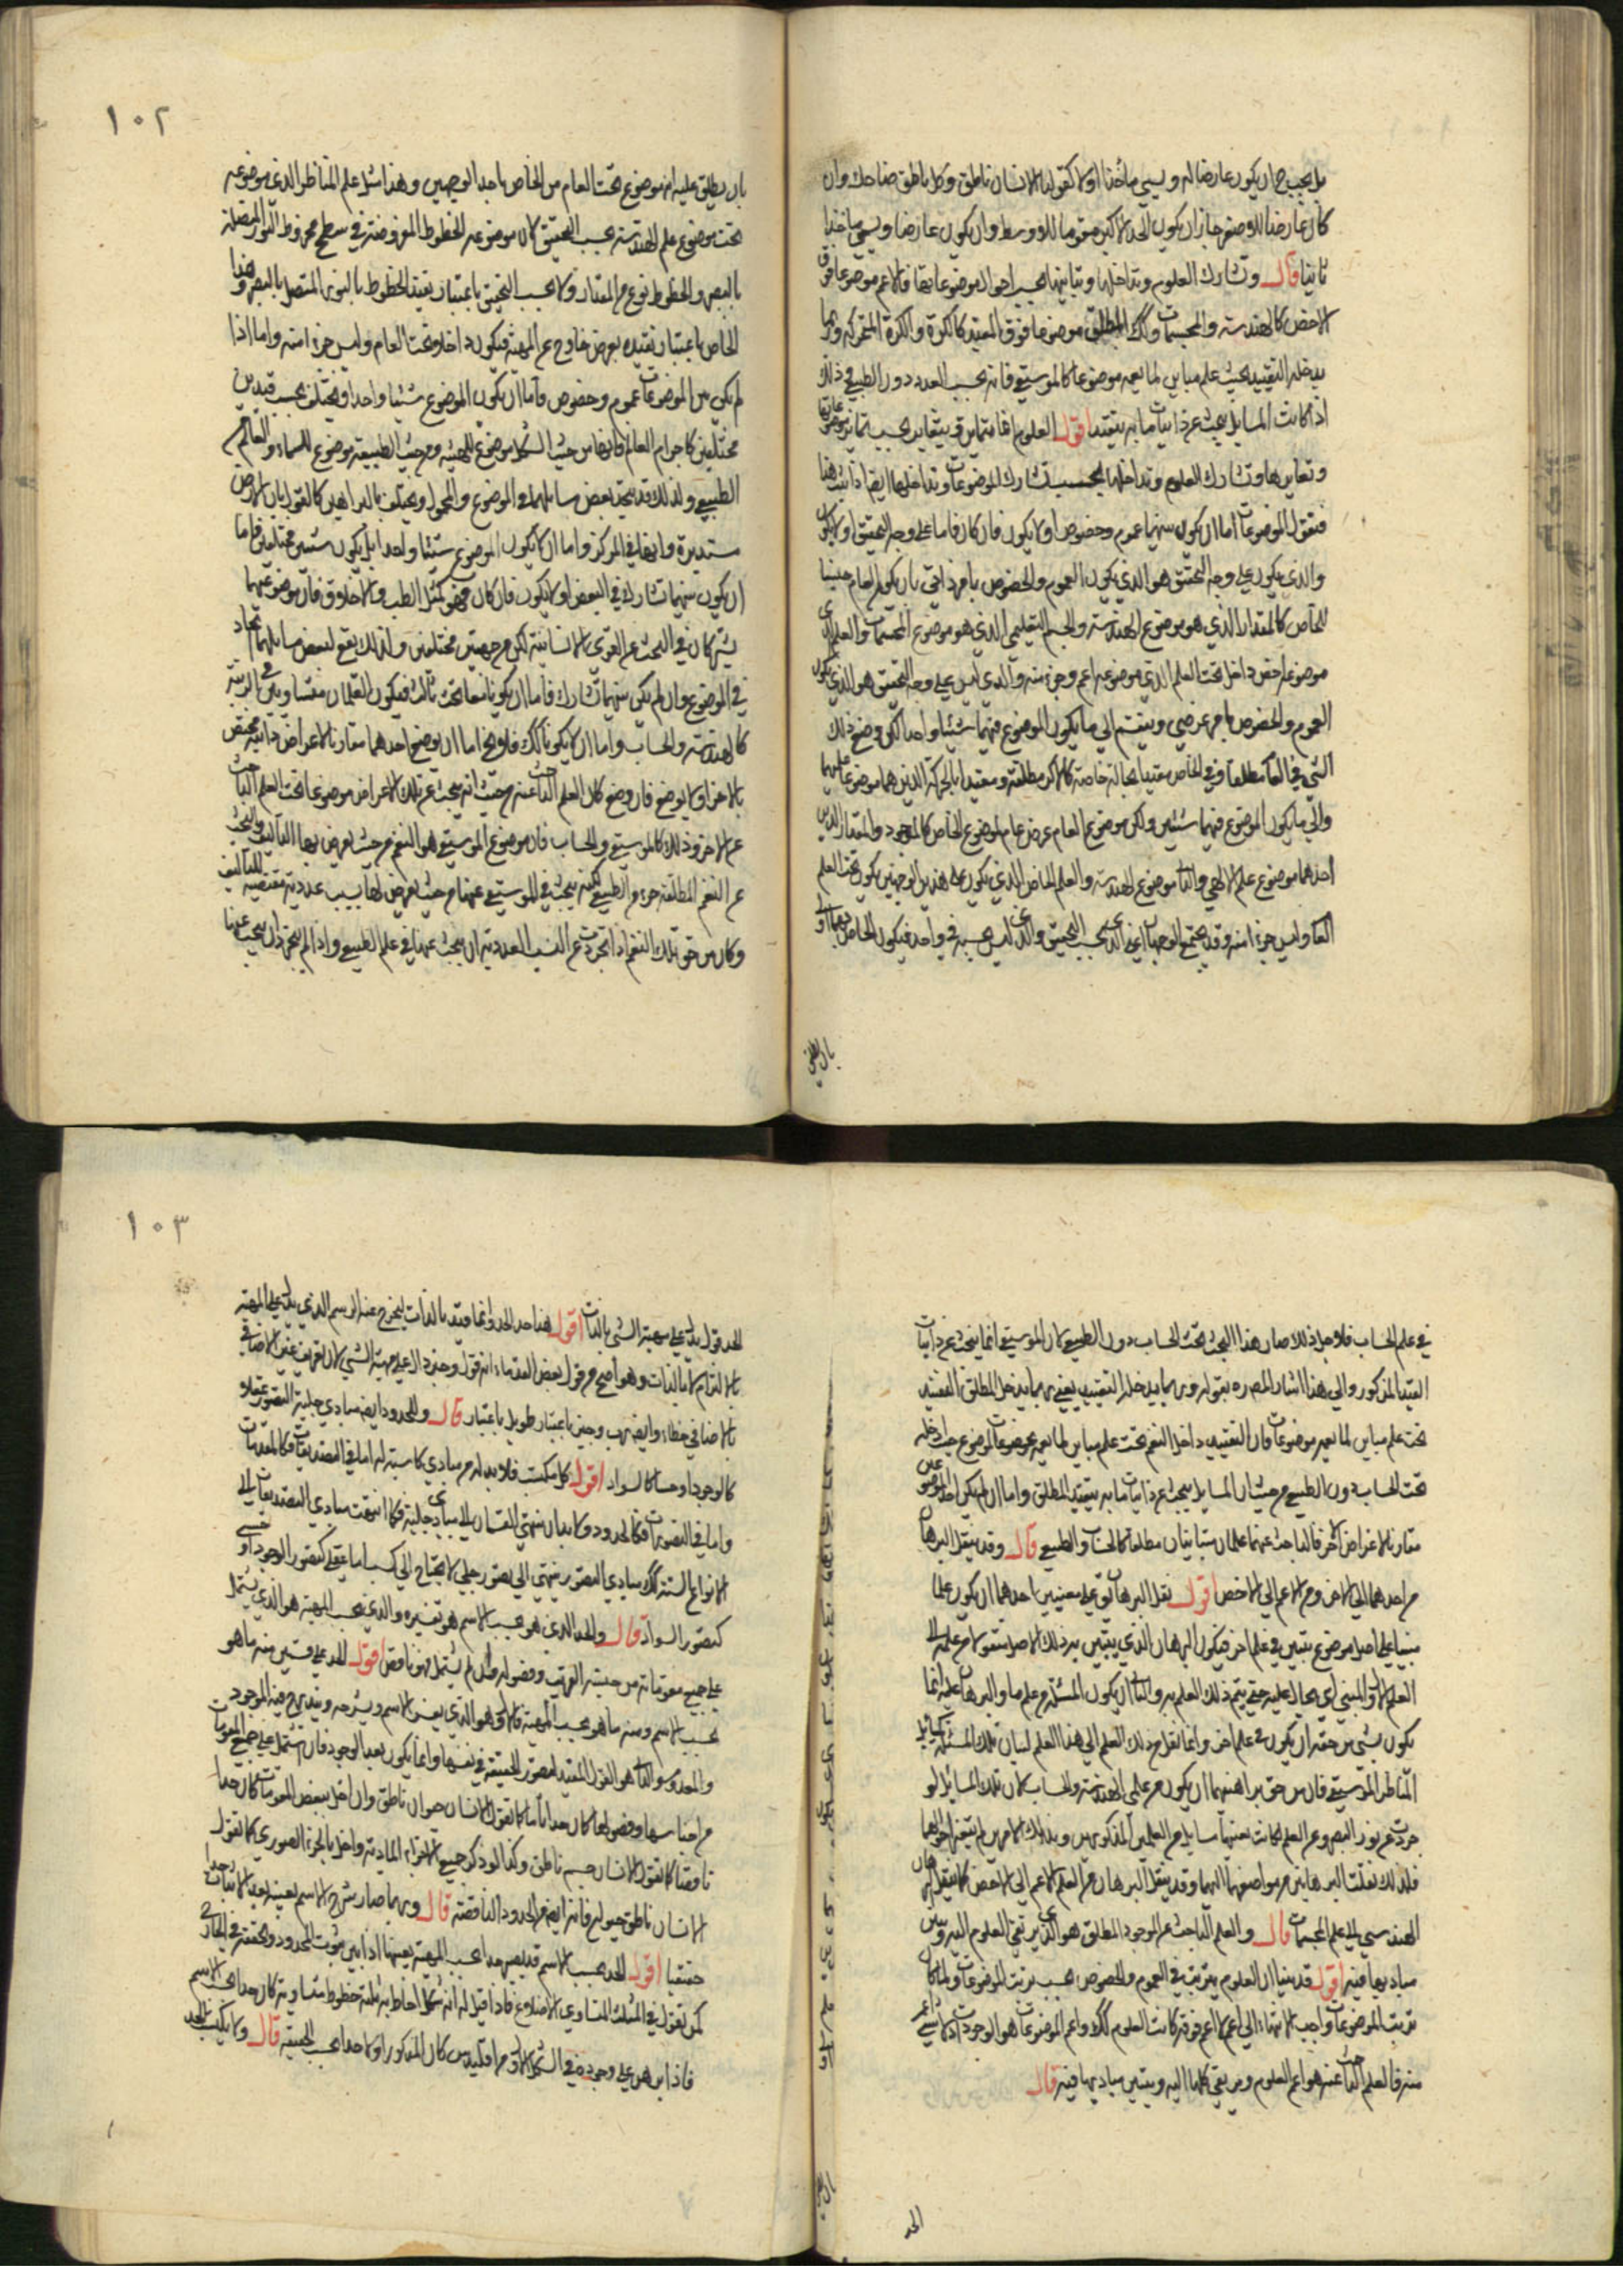 بل يجب ح ان يكون عارضا له ويسمى ماخذا اولا كقولنا الانسان ناطق وكل ناطق ضاحك وان
كان عارضا للاوصغر جاز ان يكون الحد الاكبر مقوما للاوسط وان يكون عارضا ويسمى ماخذا
ثانيا قال وتشارك العلوم وتداخلها وتباينها بحسب احوال موضوعاتها فالاعم موضوعا فوق
الاخص كالهندسة والمجسمات وكك المطلق موضوعا فوق المقيد كالكرة والكرة المتحركة وربما
يدخله التقييد تحت علم مباين لما يعمه موضوعا كالموسيقى فانه تحت العدد دون الطبيعي وذلك
اذا كانت المسايل يبحث عن ذاتيات ما به يتقيد اقول العلوم انما تتمايز وتتغاير بحسب تمايز موضوعاتها
وتغايرها وتشارك العلوم وتداخلها بحسب تشارك الموضوعات وتداخلها ايضا اذا ثبت هذا
فنقول الموضوعات اما ان يكون بينهما عموم وخصوص او لا يكون فان كان فاما على وجه التحقيق او لا يكون
والذي يكون على وجه التحقيق هو الذي يكون العموم والخصوص بامر ذاتي بان يكون العام جنسا
للخاص كالمقدار الذي هو موضوع الهندسة والجسم التعليمي الذي هو موضوع المجسمات والعلم الذي
موضوعه اخص داخل تحت العلم الذي موضوعه اعم وجزء منه والذي ليس على وجه التحقيق هو الذي يكون
العموم والخصوص بامر عرضي وينقسم الى ما يكون الموضوع فيهما شيئا واحدا لكن وضع ذلك
الشي في العام مطلقا وفي الخاص مقيدا بحالة خاصة كالاكر مطلقة ومقيدا بالحركة الذين هما موضوعا علمين
والى ما يكون الموضوع فيهما شيئين ولكن موضوع العام عرض عام لموضوع الخاص كالموجود والمقدار الذين
احدهما موضوع علم الالهي والثاني موضوع الهندسة والعلم الخاص الذي يكون على هذين الوجهين يكون تحت العلم
العام وليس جزءا منه وقد يجتمع الوجهان اعني الذي بحسب التحقيق والذي ليس بحسبه في واحد فيكون الخاص
بان يطلق
١٠٢
بان يطلق عليه انه موضوع تحت العام من الخاص باحد الوجهين وهذا مثل علم المناظر الذي موضوعه
تحت موضوع علم الهندسة بحسب التحقيق لان موضوعه الخطوط المفروضة في سطح مخروط النور المتصلة
بالبصر والخطوط نوع من المقدار ولا بحسب التحقيق باعتبار تقيد الخطوط بالنور المتصل بالبصر وهذا
الخاص باعتبار تقيده بعرض خارج عن المهية فيكون داخلا تحت العام وليس جزءا منه واما اذا
لم يكن بين الموضوعات عموم وخصوص فاما ان يكون الموضوع شيئا واحدا ويختلف بحسب قيدين
مختلفين كاجرام العالم فانها من حيث الشكل موضوع للهيئة ومن حيث الطبيعة موضوع للسماء والعالم من
الطبيعي ولذلك قد يتحد بعض مسايلهما في الموضوع والمحمول ويختلف بالبراهين كالقول بان الارض
مستديرة وانها في المركز واما ان لا يكون الموضوع شيئا واحدا بل يكون شيئين مختلفين فاما
ان يكون بينهما تشارك في البعض او لا يكون فان كان فهو كمثل الطب والاخلاق فان موضوعيهما
يشتركان في البحث عن القوى الانسانية لكن من جهتين مختلفتين ولذلك يقع لبعض مسايلهما اتحاد
في الموضوع وان لم يكن بينهما تشارك فاما ان يكونا معا تحت ثالث فيكون العلمان متساويين في الرتبة
كالهندسة والحساب واما ان لا يكونا كك فلا يخ اما ان يوضع احدهما مقارنا لاعراض ذاتية تختص
بالاخر او لا يوضع فان وضع كان العلم الباحث عنه من حيث انه يبحث عن تلك الاعراض موضوعا تحت العلم الباحث
عن الاخر وذلك كالموسيقى والحساب فان موضوع الموسيقى هو النغم من حيث يعرض بها التاليف والبحث
عن النغم المطلقة جزء من الطبيعي لكنه يبحث في الموسيقى عنها من حيث يعرض لها نسب عددية مقتضية للتاليف
وكان من حق تلك النغم اذا تجردت عن النسب العددية ان يبحث عنها في علم الطبيعي واذا لم يتجرد ان يبحث عنها
في علم الحساب فلاجل ذلك صار هذا البحث تحت الحساب دون الطبيعي لان الموسيقى انما يبحث عن ذاتيات
القيد المذكور والى هذا اشار المص ره بقوله وربما يدخله التقييد يعني ربما يدخل المطلق التقييد
تحت علم مباين لما يعمه موضوعات فان التقييد داخل النغم تحت علم مباين لما يعمه موضوعات لموضوع حيث ادخله
تحت الحساب دون الطبيعي من حيث ان المسايل يبحث عن ذاتيات ما به يتقيد المطلق واما ان لم يكن احد الموضوعين
مقارنا لاعراض الاخر فالباحث عنهما علمان متباينان مطلقا كالحساب والطبيعي قال وقد ينقل البرهان
من احدهما الى الاخر ومن الاعم الى الاخص اقول نقل البرهان يق على معنيين احدهما ان يكون علما
مبنيا على اصل موضوع يتبين في علم اخر فيكون البرهان الذي يتبين به ذلك الاصل منقولا من علمه الى
العلم الاول المبني اي يحال عليه حتى يتم ذلك العلم به والثاني ان يكون المسئلة من علم ما والبرهان عليه انما
يكون بشي من حقه ان يكون في علم اخر وانما نقل من ذلك العلم الى هذا العلم لبيان تلك المسئلة كمسايل
المناظر والموسيقى فان من حق براهينهما ان يكون من علمي الهندسة والحساب لان تلك المسايل لو
جردت عن نور البصر وعن النغم لكانت بعينها مسايل من العلمين المذكورين وبذلك الامرين لم يتغير احوالها
فلذلك نقلت البراهين من مواضعها اليهما وقد ينقل البرهان من العلم الاعم الى الاخص كما ينقل البرهان
الهندسي الى علم المجسمات قال والعلم الباحث عن الوجود المطلق هو الذي يرتقى العلوم اليه ويبين
مباديها فيه اقول قد بينا ان العلوم يترتب في العموم والخصوص بحسب ترتب الموضوعات ولما كان
ترتب الموضوعات واجب الانتهاء الى اعم لا اعم فوقه كانت العلوم كك واعم الموضوعات هو الوجود اذ لا شي اعم
منه فالعلم الباحث عنه هو اعم العلوم ويرتقى كلها اليه ويتبين مباديها فيه قال
الحد
١٠٣
الحد قول يدل على مهية الشي بالذات اقول هذا حد الحد وانما قيد بالذات ليخرج عنه الرسم الذي يدل على المهية
بالالتزام لا بالذات وهو اصح من قول بعض القدماء انه قول وجيز دال على مهية الشي لان تعريف غير الاضافي
بالاضافي خطاء وايضا رب وجيز باعتبار طويل باعتبار قال وللحدود ايضا مبادي جلية التصور عقلا
كالوجود او حسا كالسواد اقول كل مكتسب فلا بد له من مبادي كاسبة له اما في التصديقات فكالمقدمات
واما في التصورات فكالحدود ولا بد ان ينتهي القسمان الى مبادي جلية فكما انتهت مبادي التصديقات الى
الانواع الستة كك مبادي التصور ينتهي الى تصور جلي لا يحتاج الى كسب اما عقلي كتصور الوجود او حسي
كتصور السواد قال والحد الذي هو بحسب الاسم هو تفسيره والذي بحسب المهية هو الذي يشتمل
على جميع مقوماته من جنسه القريب وفصوله وان لم يشتمل فهو ناقص اقول الحد على قسمين منه ما هو
بحسب الاسم ومنه ما هو بحسب المهية فالاول هو الذي يفسر الاسم ويشرحه ويندرج فيه الموجود
والمعدوم والثاني هو القول المفيد لتصور الحقيقة في نفسها وانما يكون بعد الوجود فان اشتمل على جميع المقومات
من اجناسها وفصولها كان حدا تاما كما تقول الانسان حيوان ناطق وان اخل ببعض المقومات كان حدا
ناقصا كما تقول الانسان جسم ناطق وكذا لو ذكر جميع الاجزاء المادية واخل بالجزء الصوري كما تقول
الانسان ناطق حيوان فانه ايضا من الحدود الناقصة قال وربما صار شرح الاسم بعينه بعد الاثبات حدا
حقيقيا اقول الحد بحسب الاسم قد يصير حدا بحسب المهية بعينها اذا بين ثبوت المحدود وتحققه في الخارج
كمن تقول في المثلث المتساوي الاضلاع فاذا قيل له انه شكل احاط به ثلثة خطوط متساوية كان حدا بحسب الاسم
فاذا برهن على وجوده في الشكل الاول من اقليدس كان المذكور اولا حدا بحسب الحقيقة قال ولا يكتسب الحد